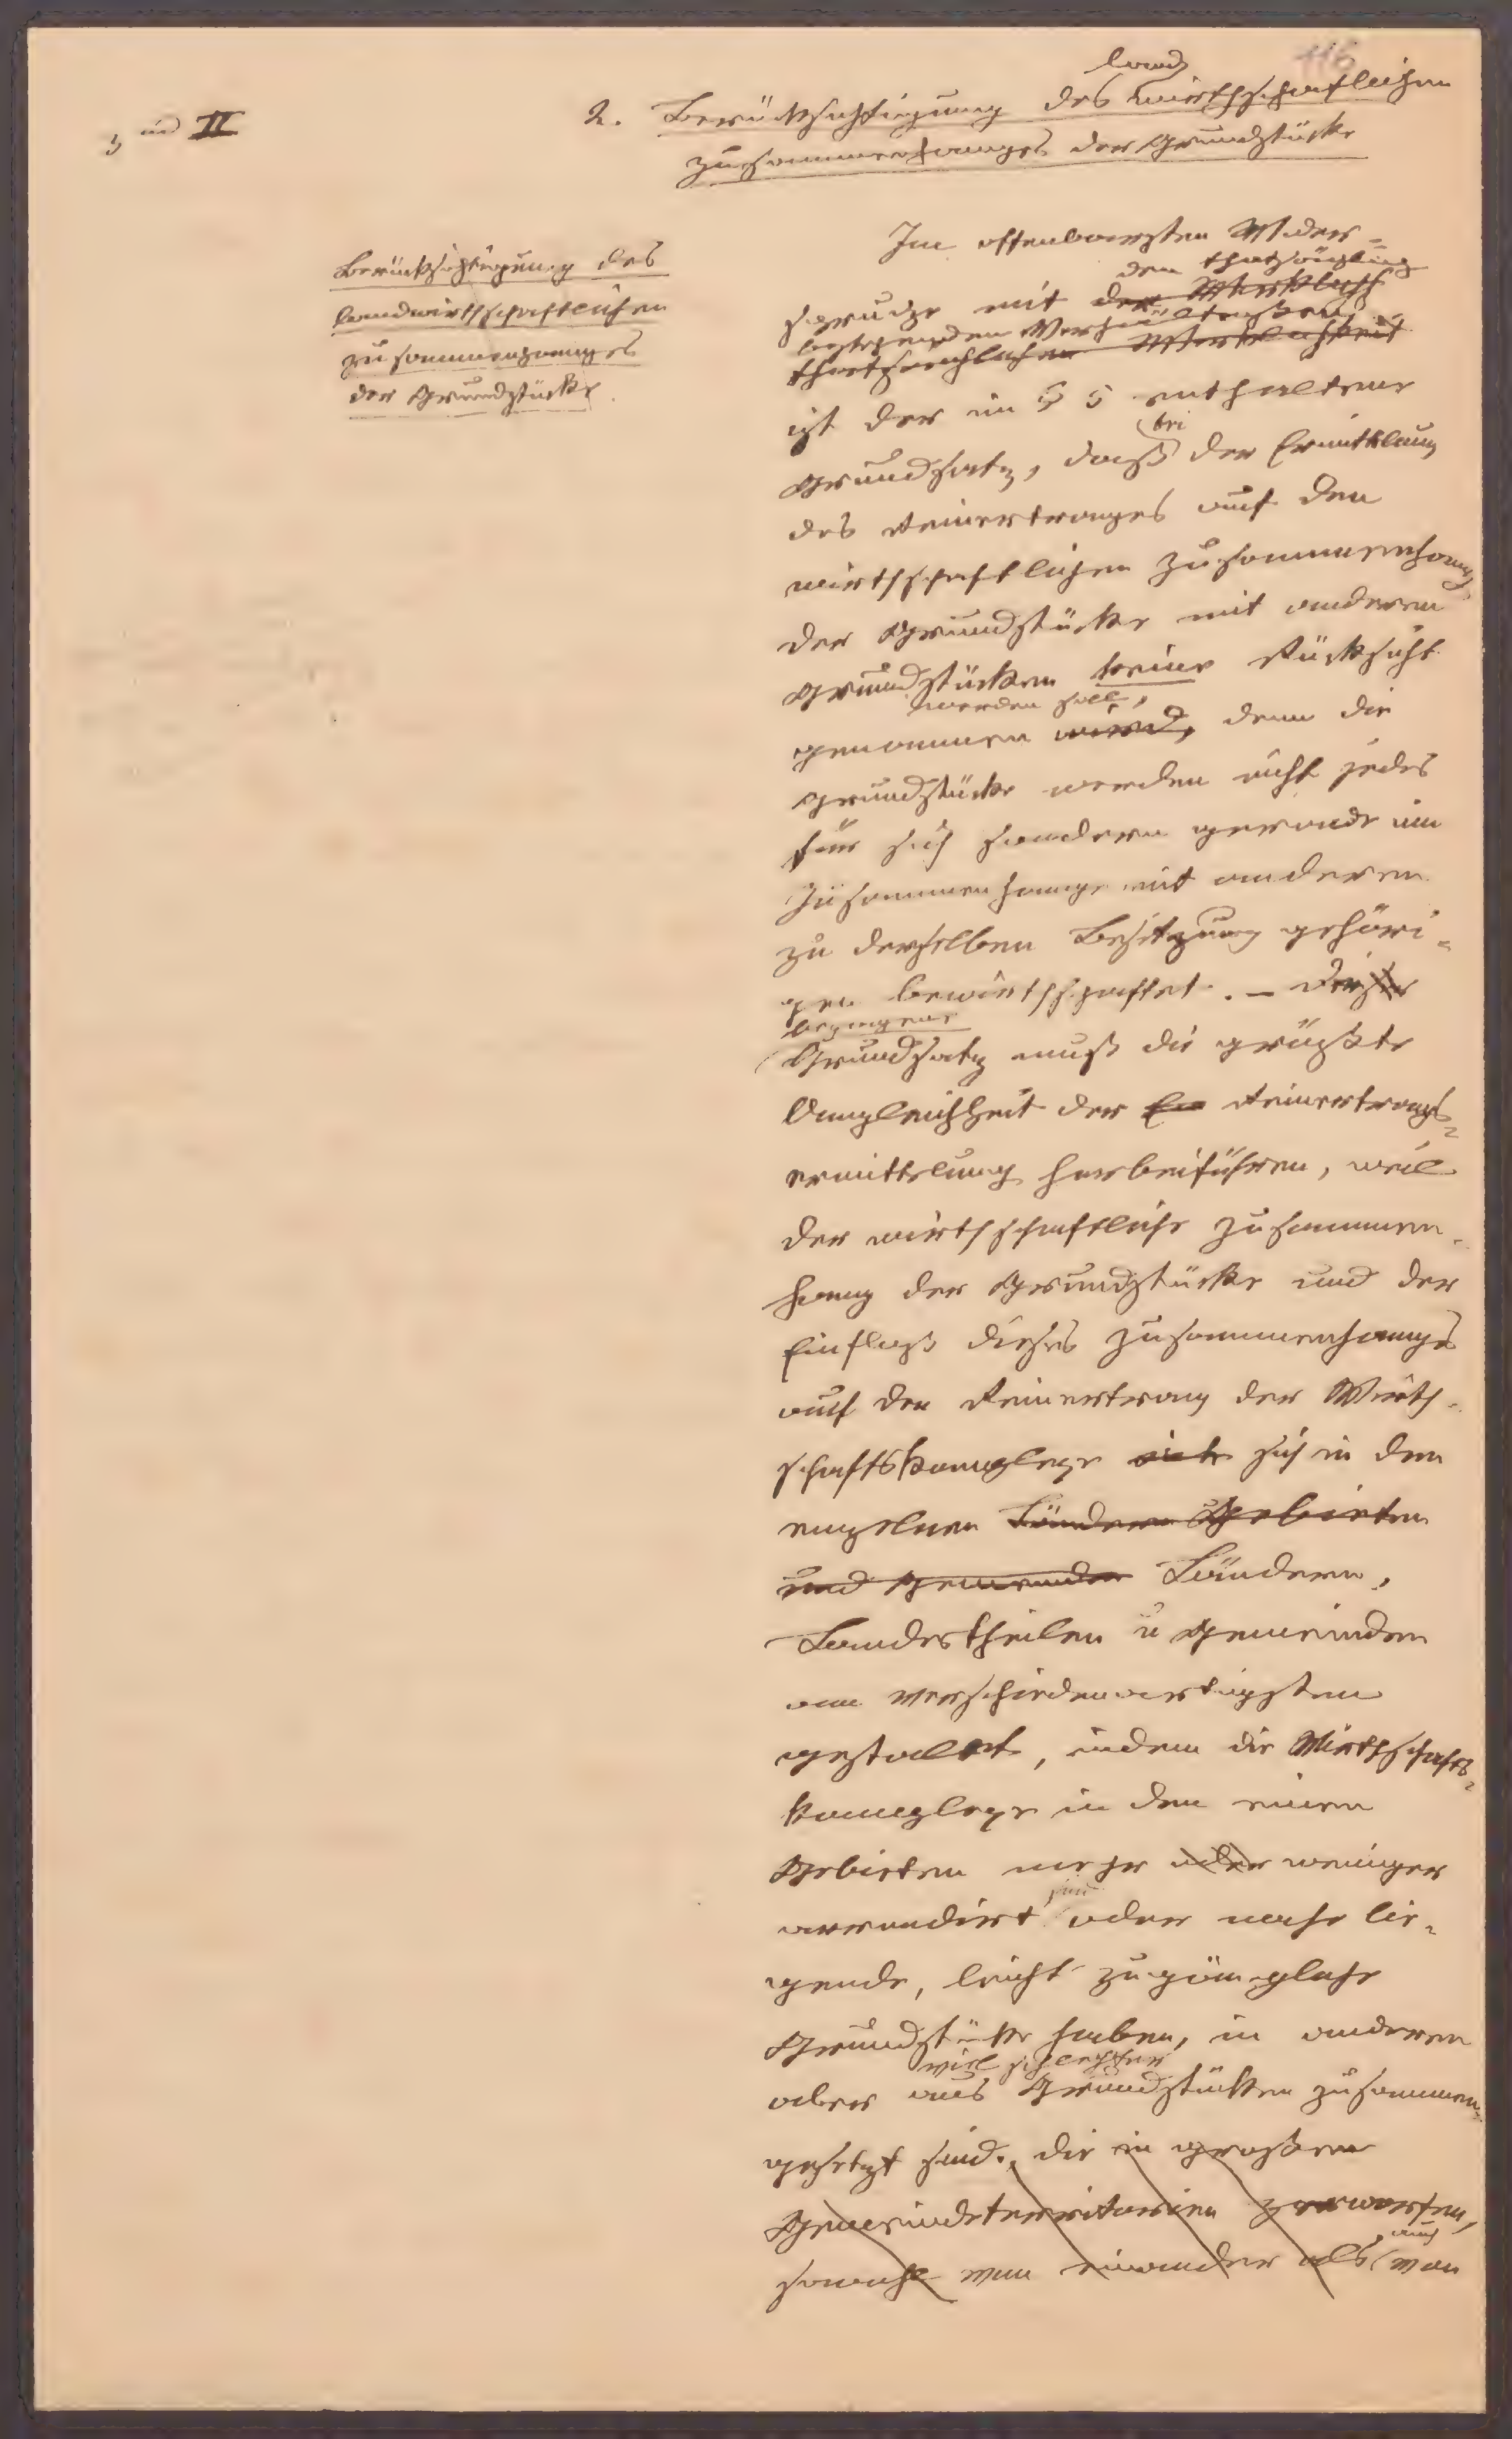 116
ad II
land
2. Berücksichtigung des wirthschaftlichen
Zusammenhanges der Grundstücke
Berücksichtigung des
landwirthschaftlichen
Zusammenhanges
der Grundstücke.
Im offenbarsten Wider-
den thatsächlich
spruche mit der Wirklich
bestehenden Verhältnissen
thatsächlichen Wirklichkeit
ist der im § 5 enthaltene
bei
Grundsatz, daß der Ermittlung
des Reinertrages auf den
wirthschaftlichen Zusammenhang
der Grundstücke mit anderen
Grundstücken keine Rücksicht
werden soll,
genommen wird, denn die
Grundstücke werden nicht jedes
für sich sondern gerade im
Zusammenhange mit anderen
zu derselben Besitzung gehöri-
gen bewirthschaftet. – Dieser
bezogene
Grundsatz muß die größte
Ungleichheit der Er Reinertrags-
ermittelung herbeiführen, weil
der wirthschaftliche Zusammen-
hang der Grundstücke und der
Einfluß dieses Zusammenhanges
auf den Reinertrag der Wirth-
schaftskomplexe sich in den
einzelnen Ländern Gebieten
und Gemeinden Ländern,
Landestheilen u Gemeinden
am verschiedenartigsten
gestaltet, indem die Wirthschafts-
komplexe in den einen
Gebieten mehr oder weniger
sind
arrondirt oder nahe lie-
gende, leicht zugängliche
Grundstücke haben, in anderen
viel schlechter
aber aus Grundstücken zusammen-
gesetzt sind, die in großen
Gemeindeterritorien zerworfen,
auch
sowohl von einander als von